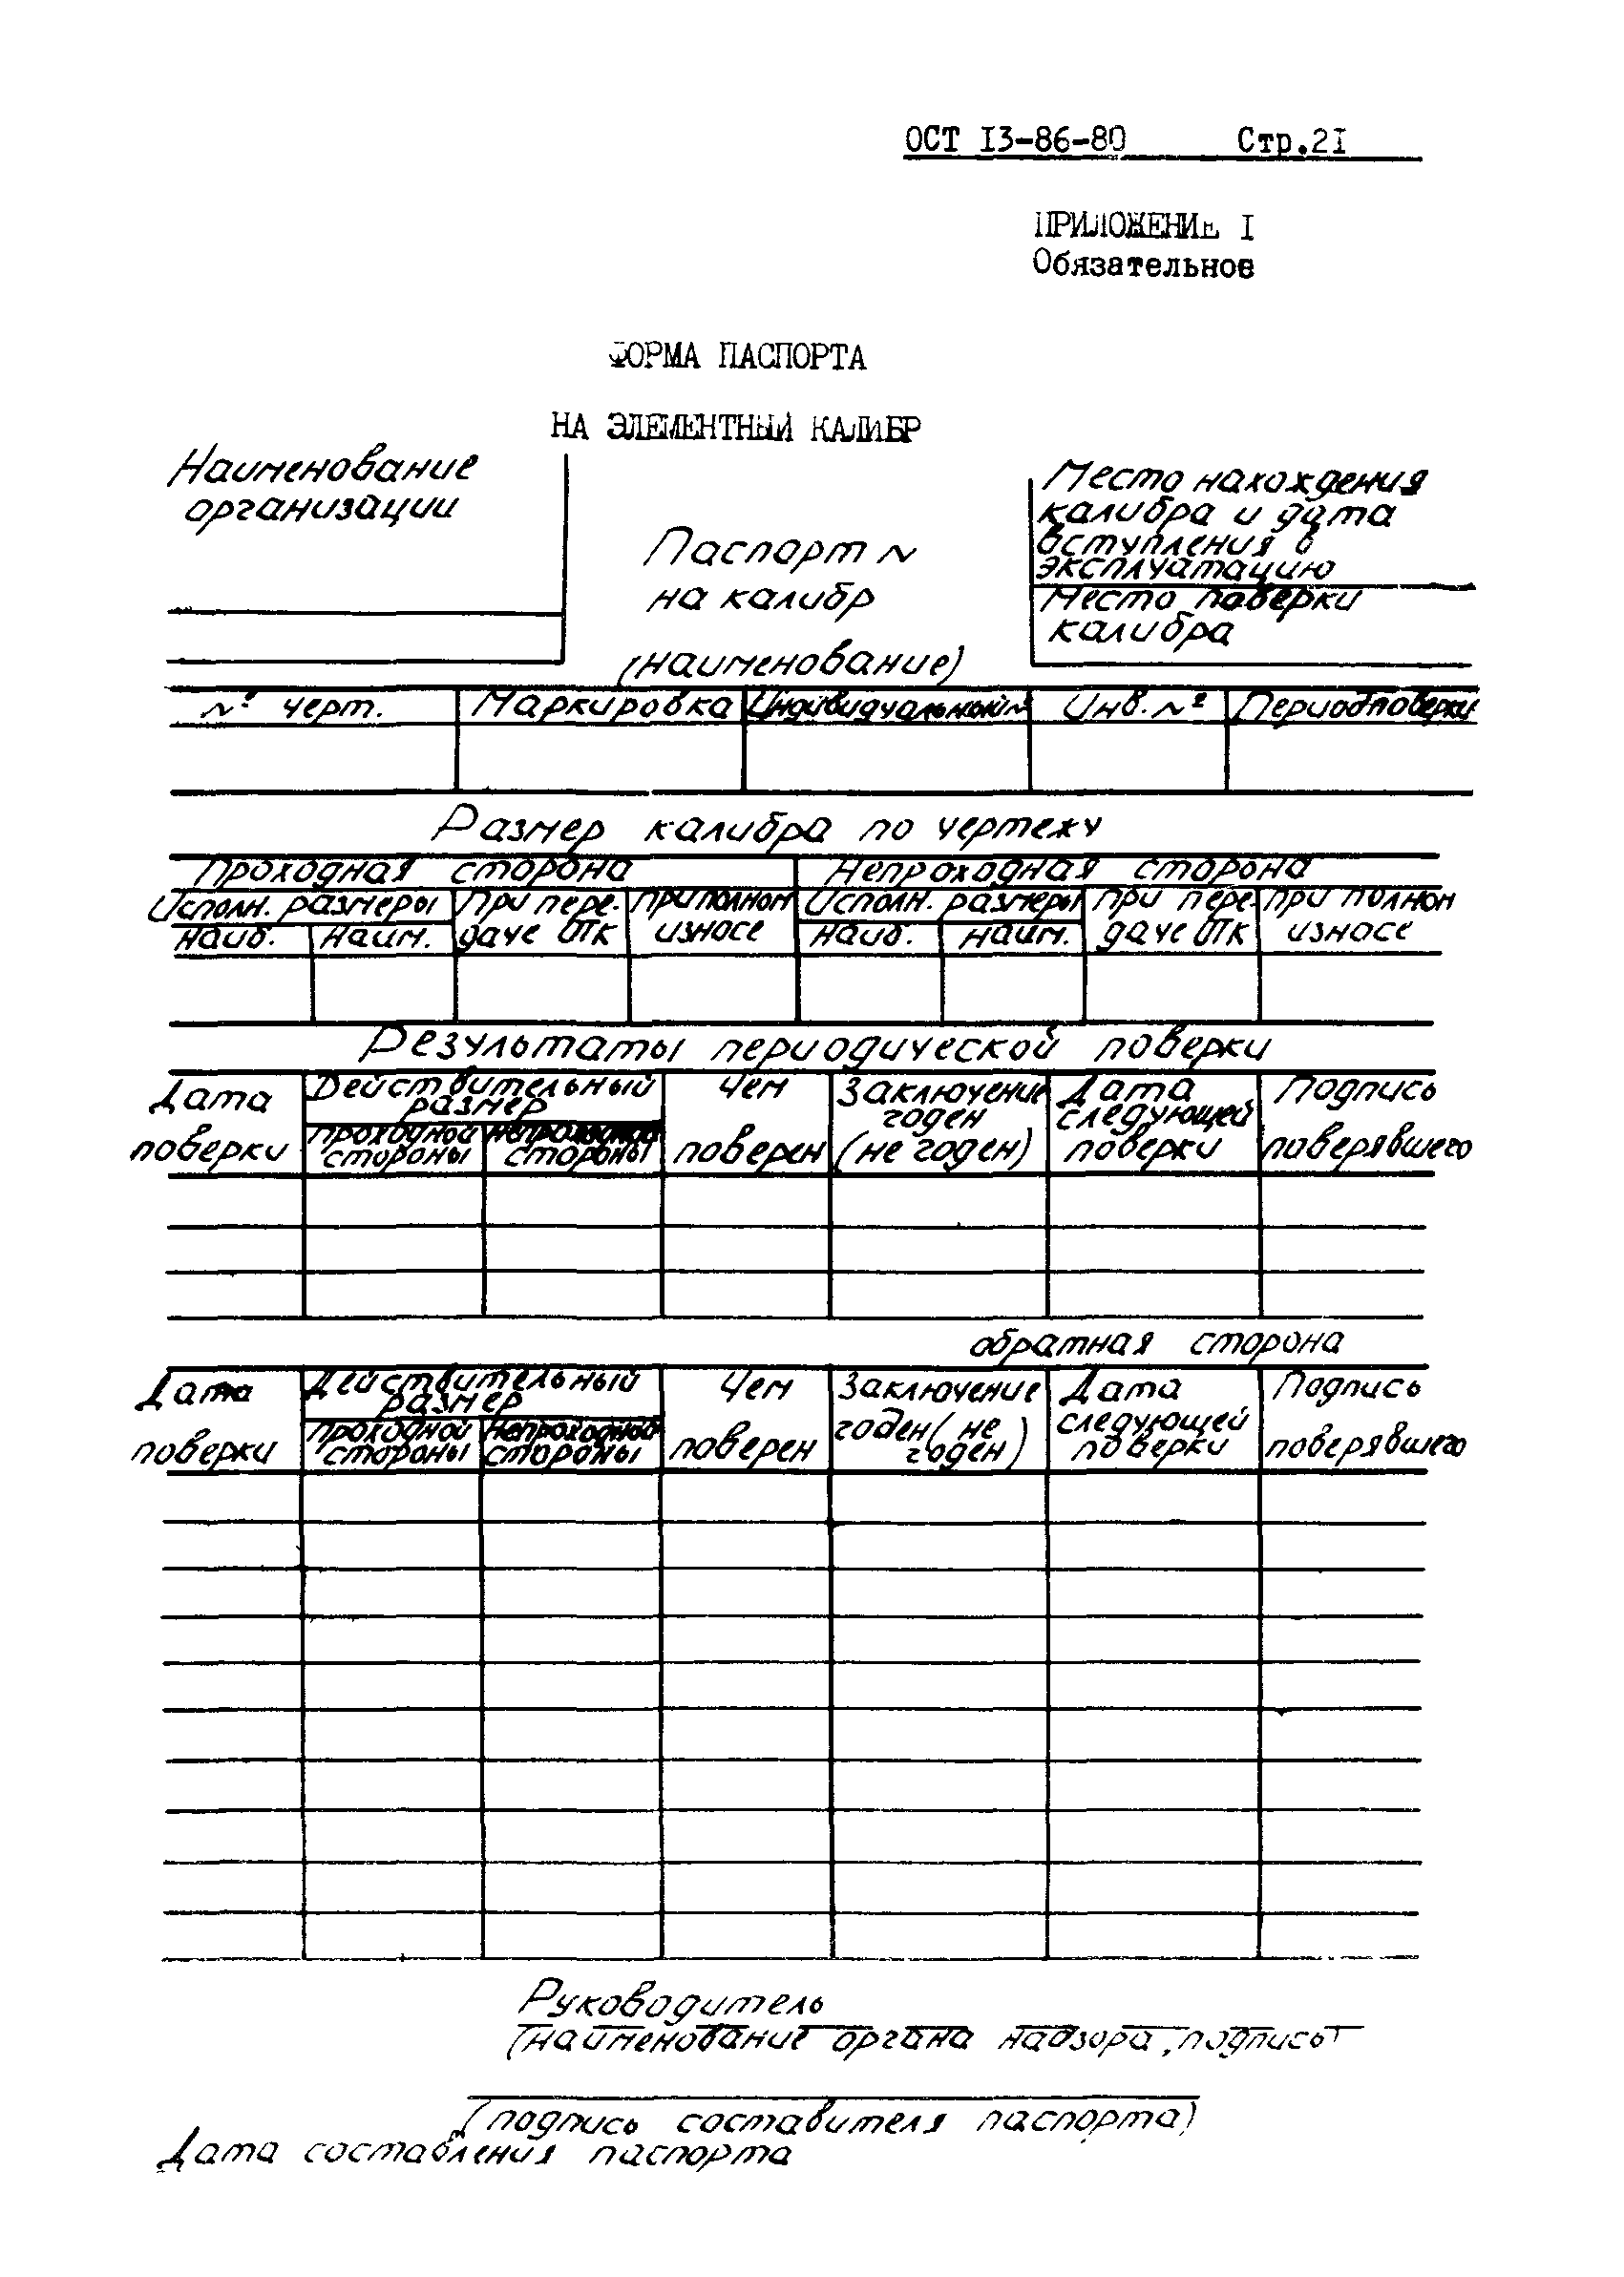 ОСТ 13-86-80 Стр.21
ПРИЛОЖЕНИЕ I
Обязательное
ФОРМА ПАСПОРТА
НА ЭЛЕМЕНТНЫЙ КАЛИБР
Наименование
организации
Паспорт №
на калибр
(наименование)
Место нахождения
калибра и дата
вступления в
эксплуатацию
Место поверки
калибра
№ черт. Маркировка Индивидуальный № Инв. № Период поверки
Размер калибра по чертежу
Проходная сторона Непроходная сторона
Исполн. размеры При пере- При полном Исполн. размеры При пере- При полном
наиб. наим. даче ОТК износе наиб. наим. даче ОТК износе
Результаты периодической поверки
Дата Действительный Чем Заключение Дата Подпись
размер годен следующей
поверки проходной непроходной поверен (не годен) поверки поверявшего
стороны стороны
обратная сторона
Дата Действительный Чем Заключение Дата Подпись
размер годен (не следующей
поверки проходной непроходной поверен годен) поверки поверявшего
стороны стороны
Руководитель
(наименование органа надзора, подпись)
(подпись составителя паспорта)
Дата составления паспорта